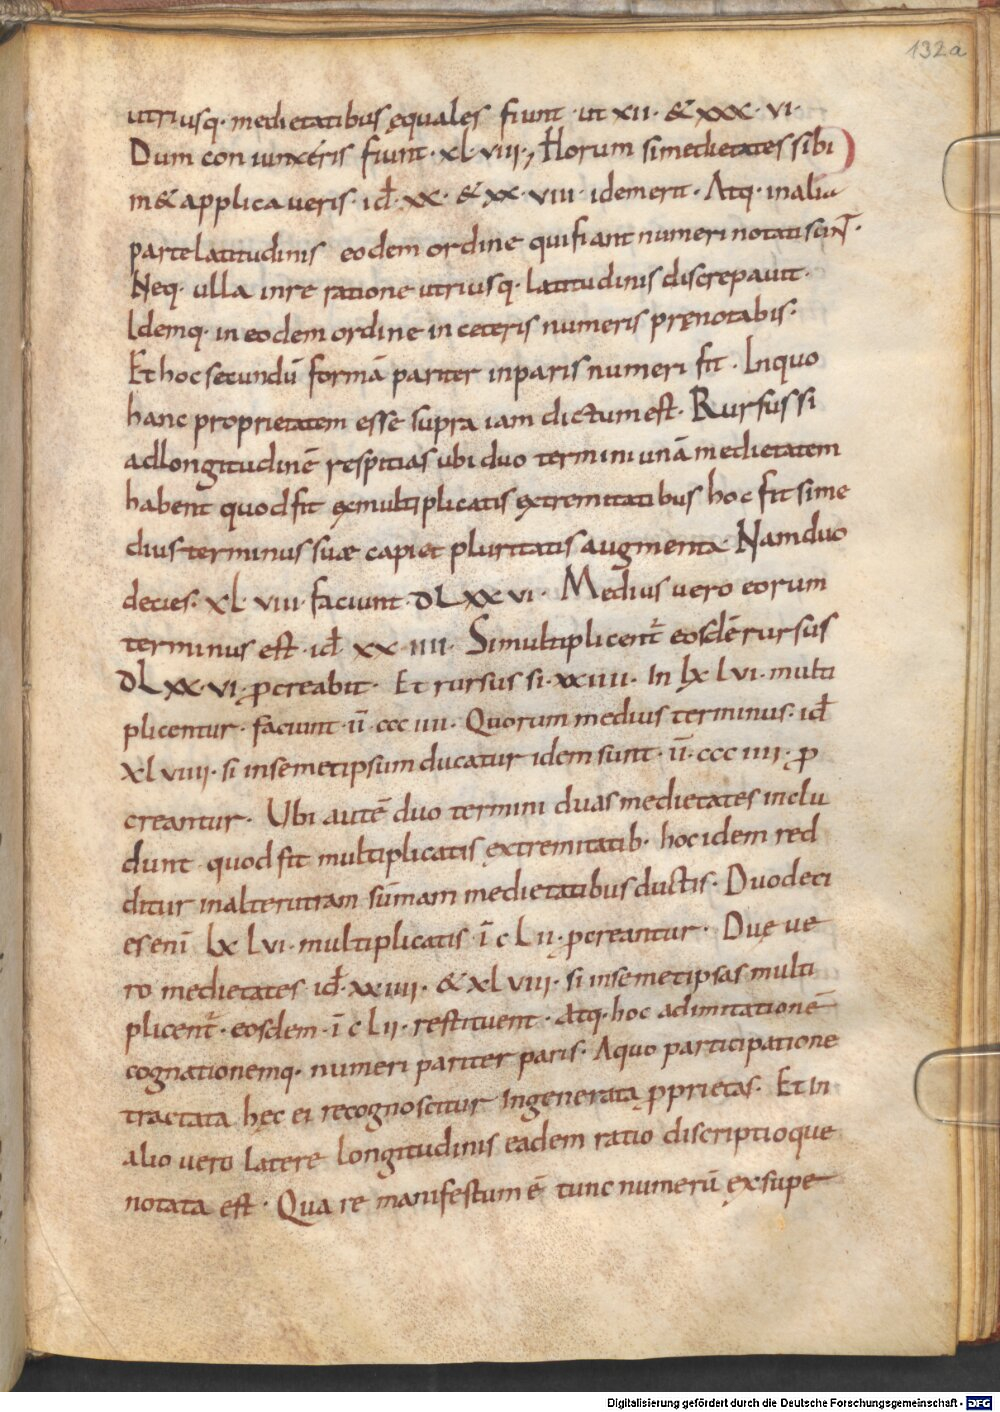 132a
utriusq· medietatibus ęquales fiunt · ut xii· & xxx· vi·
Dum con iunxeris fiunt· xl· viii·, Horum simedietates sibi
m& applicaueris· id̄· xx· & xx· viii· idemerit · Atq· inalia
partelatitudinis eodem ordine quifiant numeri notatisunt̄·
Neq· ulla inre ratione utriusq· latitudinis discrepauit·
Idemq· in eodem ordine in ceteris numeris pręnotabis·
Et hoc secundū formā pariter inparis numeri fit · Inquo
hanc proprietatem esse supra iam dictum est· Rursus si
adlongitudinē respitias ubi duo termini unā medietatem
habent quod fit ex multiplicatis extremitatibus hoc fit sime
dius terminus suæ capiet pluritatis augmenta· Nam duo
decies· xl· viii· faciunt· dlxxvi· Medius uero eorum
terminus est · id̄ · xx· iiii· Simultiplicent̄ eosdē rursus
dlxx·vi· ꝓcreabit· Et rursus si· xxiiii· In lx lvi· multi
plicentur· faciunt· ii̅· ccc iiii· Quorum medius terminus· id̄
xl viiii· si insemetipsum ducatur idem sunt· ii̅· ccc iiii· ꝓ
creantur· Ubi autē duo termini duas medietates inclu
dunt quod fit multiplicatis extremitatib· hoc idem red
ditur inalterutram sūmam medietatibus ductis· Duodeci
es enī lx lvi· multiplicatis i̅ c lii· pcreantur· Duę ue
ro medietates id̄· xxiiii· & xl viii· si insemetipsas multi
plicent̄· eosdem· i̅ c lii· restituent· Atq· hoc adimitationē
cognationemq· numeri pariter paris· Aquo participatione
tractata hęc ei recognoscitur Ingenerata ꝓprietas· Et In
alio uero latere longitudinis eadem ratio discriptioque
notata est· Qua re manifestum ē tunc numerū exsupe
Digitalisierung gefördert durch die Deutsche Forschungsgemeinschaft - DFG